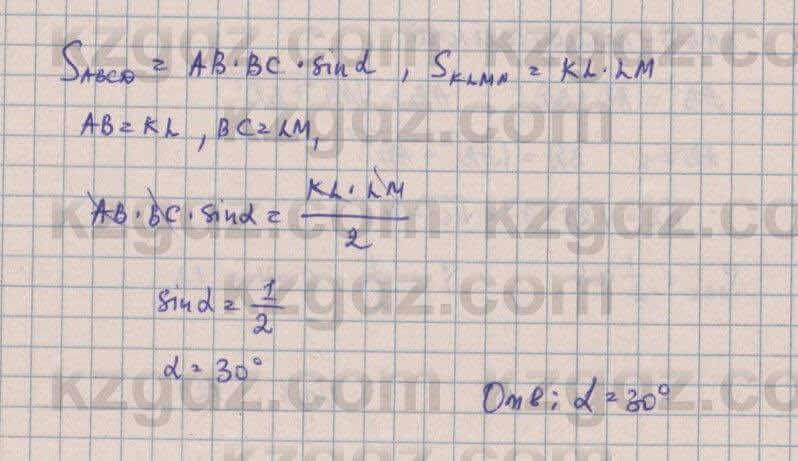 S_ABCD = AB · BC · sin α , S_KLMN = KL · LM
AB = KL , BC = LM,
AB · BC · sin α = KL · LM / 2
sin α = 1/2
α = 30°
Отв: α = 30°
kzgdz.com